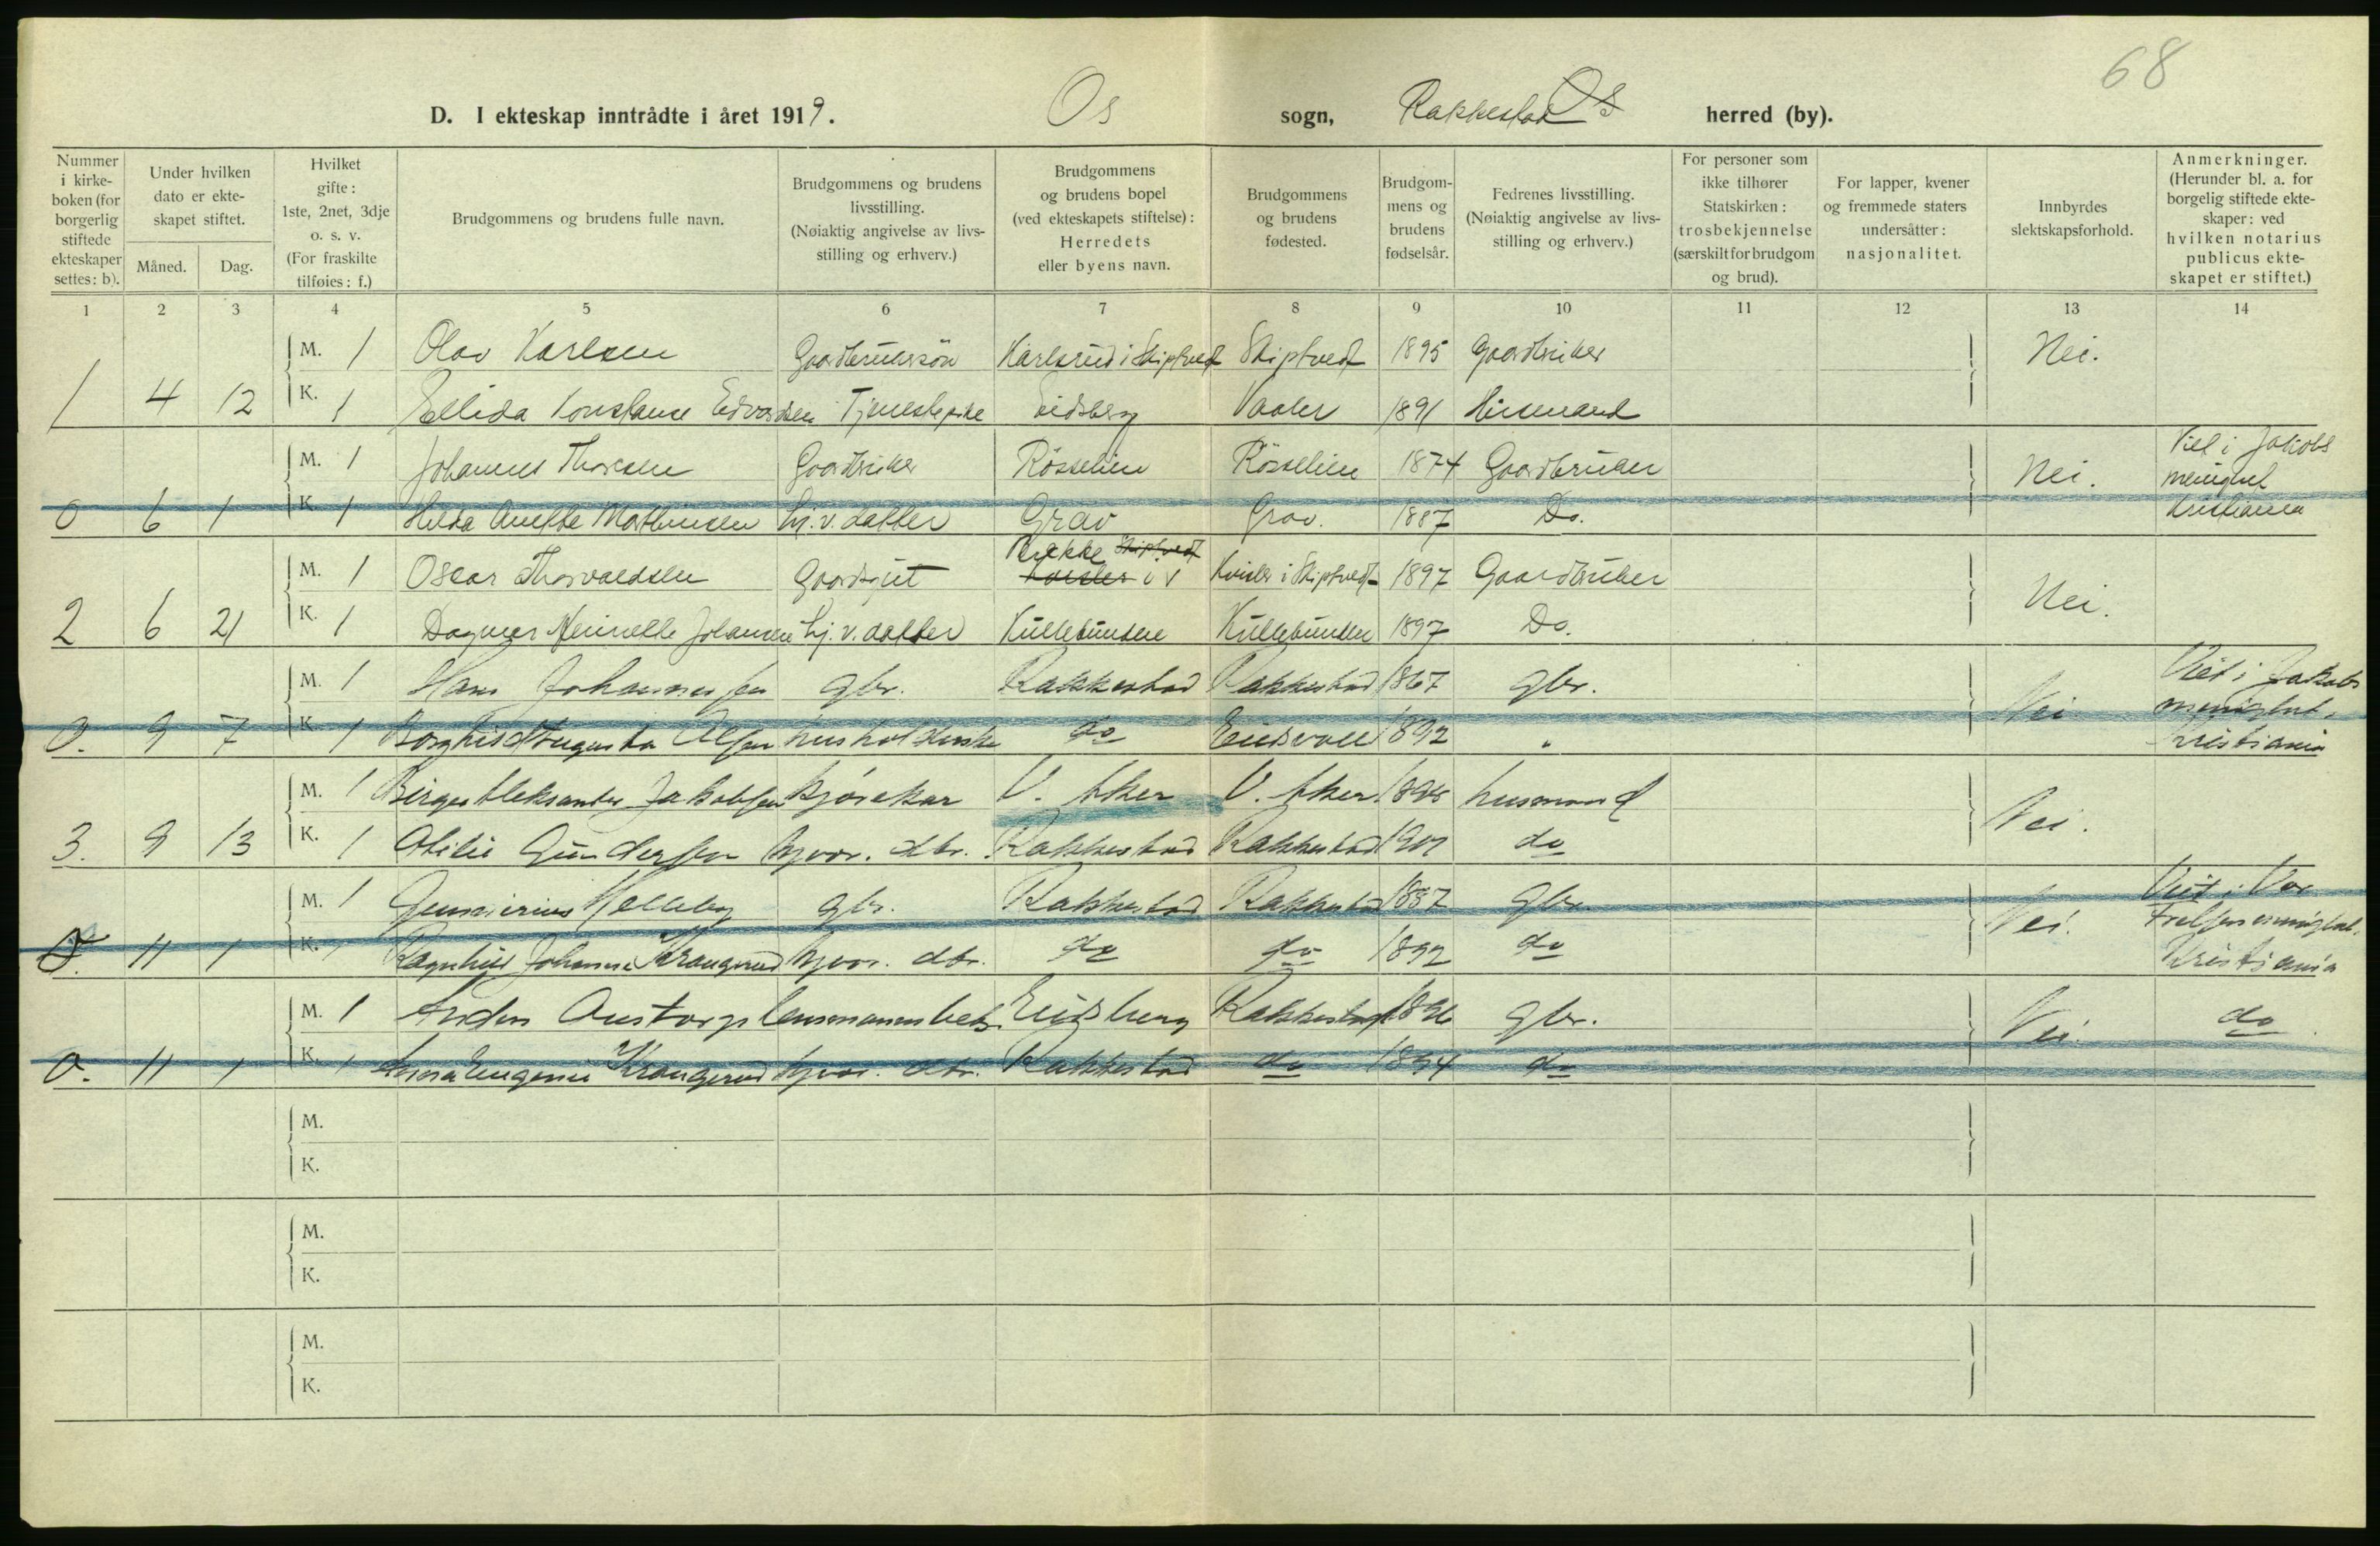 68
D. I ekteskap inntrådte i året 1919. Os sogn, Rakkestad Os herred (by).
Nummer i kirkeboken (for borgerlig stiftede ekteskaper settes: b).
Under hvilken dato er ekteskapet stiftet.
Måned. Dag.
Hvilket gifte: 1ste, 2net, 3dje o. s. v. (For fraskilte tilføies: f.)
Brudgommens og brudens fulle navn.
Brudgommens og brudens livsstilling. (Nøiaktig angivelse av livsstilling og erhverv.)
Brudgommens og brudens bopel (ved ekteskapets stiftelse): Herredets eller byens navn.
Brudgommens og brudens fødested.
Brudgommens og brudens fødselsår.
Fedrenes livsstilling. (Nøiaktig angivelse av livsstilling og erhverv.)
For personer som ikke tilhører Statskirken: trosbekjennelse (særskilt for brudgom og brud).
For lapper, kvener og fremmede staters undersåtter: nasjonalitet.
Innbyrdes slektskapsforhold.
Anmerkninger. (Herunder bl. a. for borgelig stiftede ekteskaper: ved hvilken notarius publicus ekteskapet er stiftet.)
1 2 3 4 5 6 7 8 9 10 11 12 13 14
M. 1 Olav Karlsen Gaardbrukersøn Karlsrud i Skiptvedt Skiptvedt 1895 Gaardbruker Nei.
1 4 12 K. 1 Ellida Constanse Edvardsen Tjenestepike Eidsberg Vaaler 1891 Husmand
M. 1 Johannes Thoresen Gaardbruker Rösselien Rösselien 1874 Gaardbruker Nei. Viet i Jakobs menighet Kristiania
0 6 1 K. 1 Hilda Anette Mathiesen hj.v. datter Grav Grav. 1887 Do.
M. 1 Oscar Thorvaldsen Gaardsgut Kvisler i Skiptvedt 1897 Gaardbruker Nei.
2 6 21 K. 1 Dagmar Johansen hj.v. datter Kullebunden Kullebunden 1897 Do.
M. 1 Hans Johannessen gbr. Rakkestad Rakkestad 1867 gbr. Nei Viet i Jakobs menighet. Kristiania
0. 9 7 K. 1 Borghild Augusta Olsen husholderske do Eidsvoll 1892 "
M. 1 Birger Aleksander Jakobsen kjørekar V. Aker V. Aker husmand Nei.
3. 9 13 K. 1 Otilie Gundersen hjvær. dtr. Rakkestad Rakkestad do
M. 1 Gunnerius gbr. Rakkestad Rakkestad 1887 gbr. Nei. Viet i Vor Frelsers menighet. Kristiania
0. 11 1 K. 1 Ragnhild Johanne Krangerud hjvær. dtr. do do 1892 do
M. 1 Anders Austorp lensmannsbetj. Eidsberg Rakkestad 1896 gbr. Nei. do
0. 11 1 K. 1 Anna Eugenie Krangerud hjvær. dtr. Rakkestad do 1894 do
M.
K.
M.
K.
M.
K.